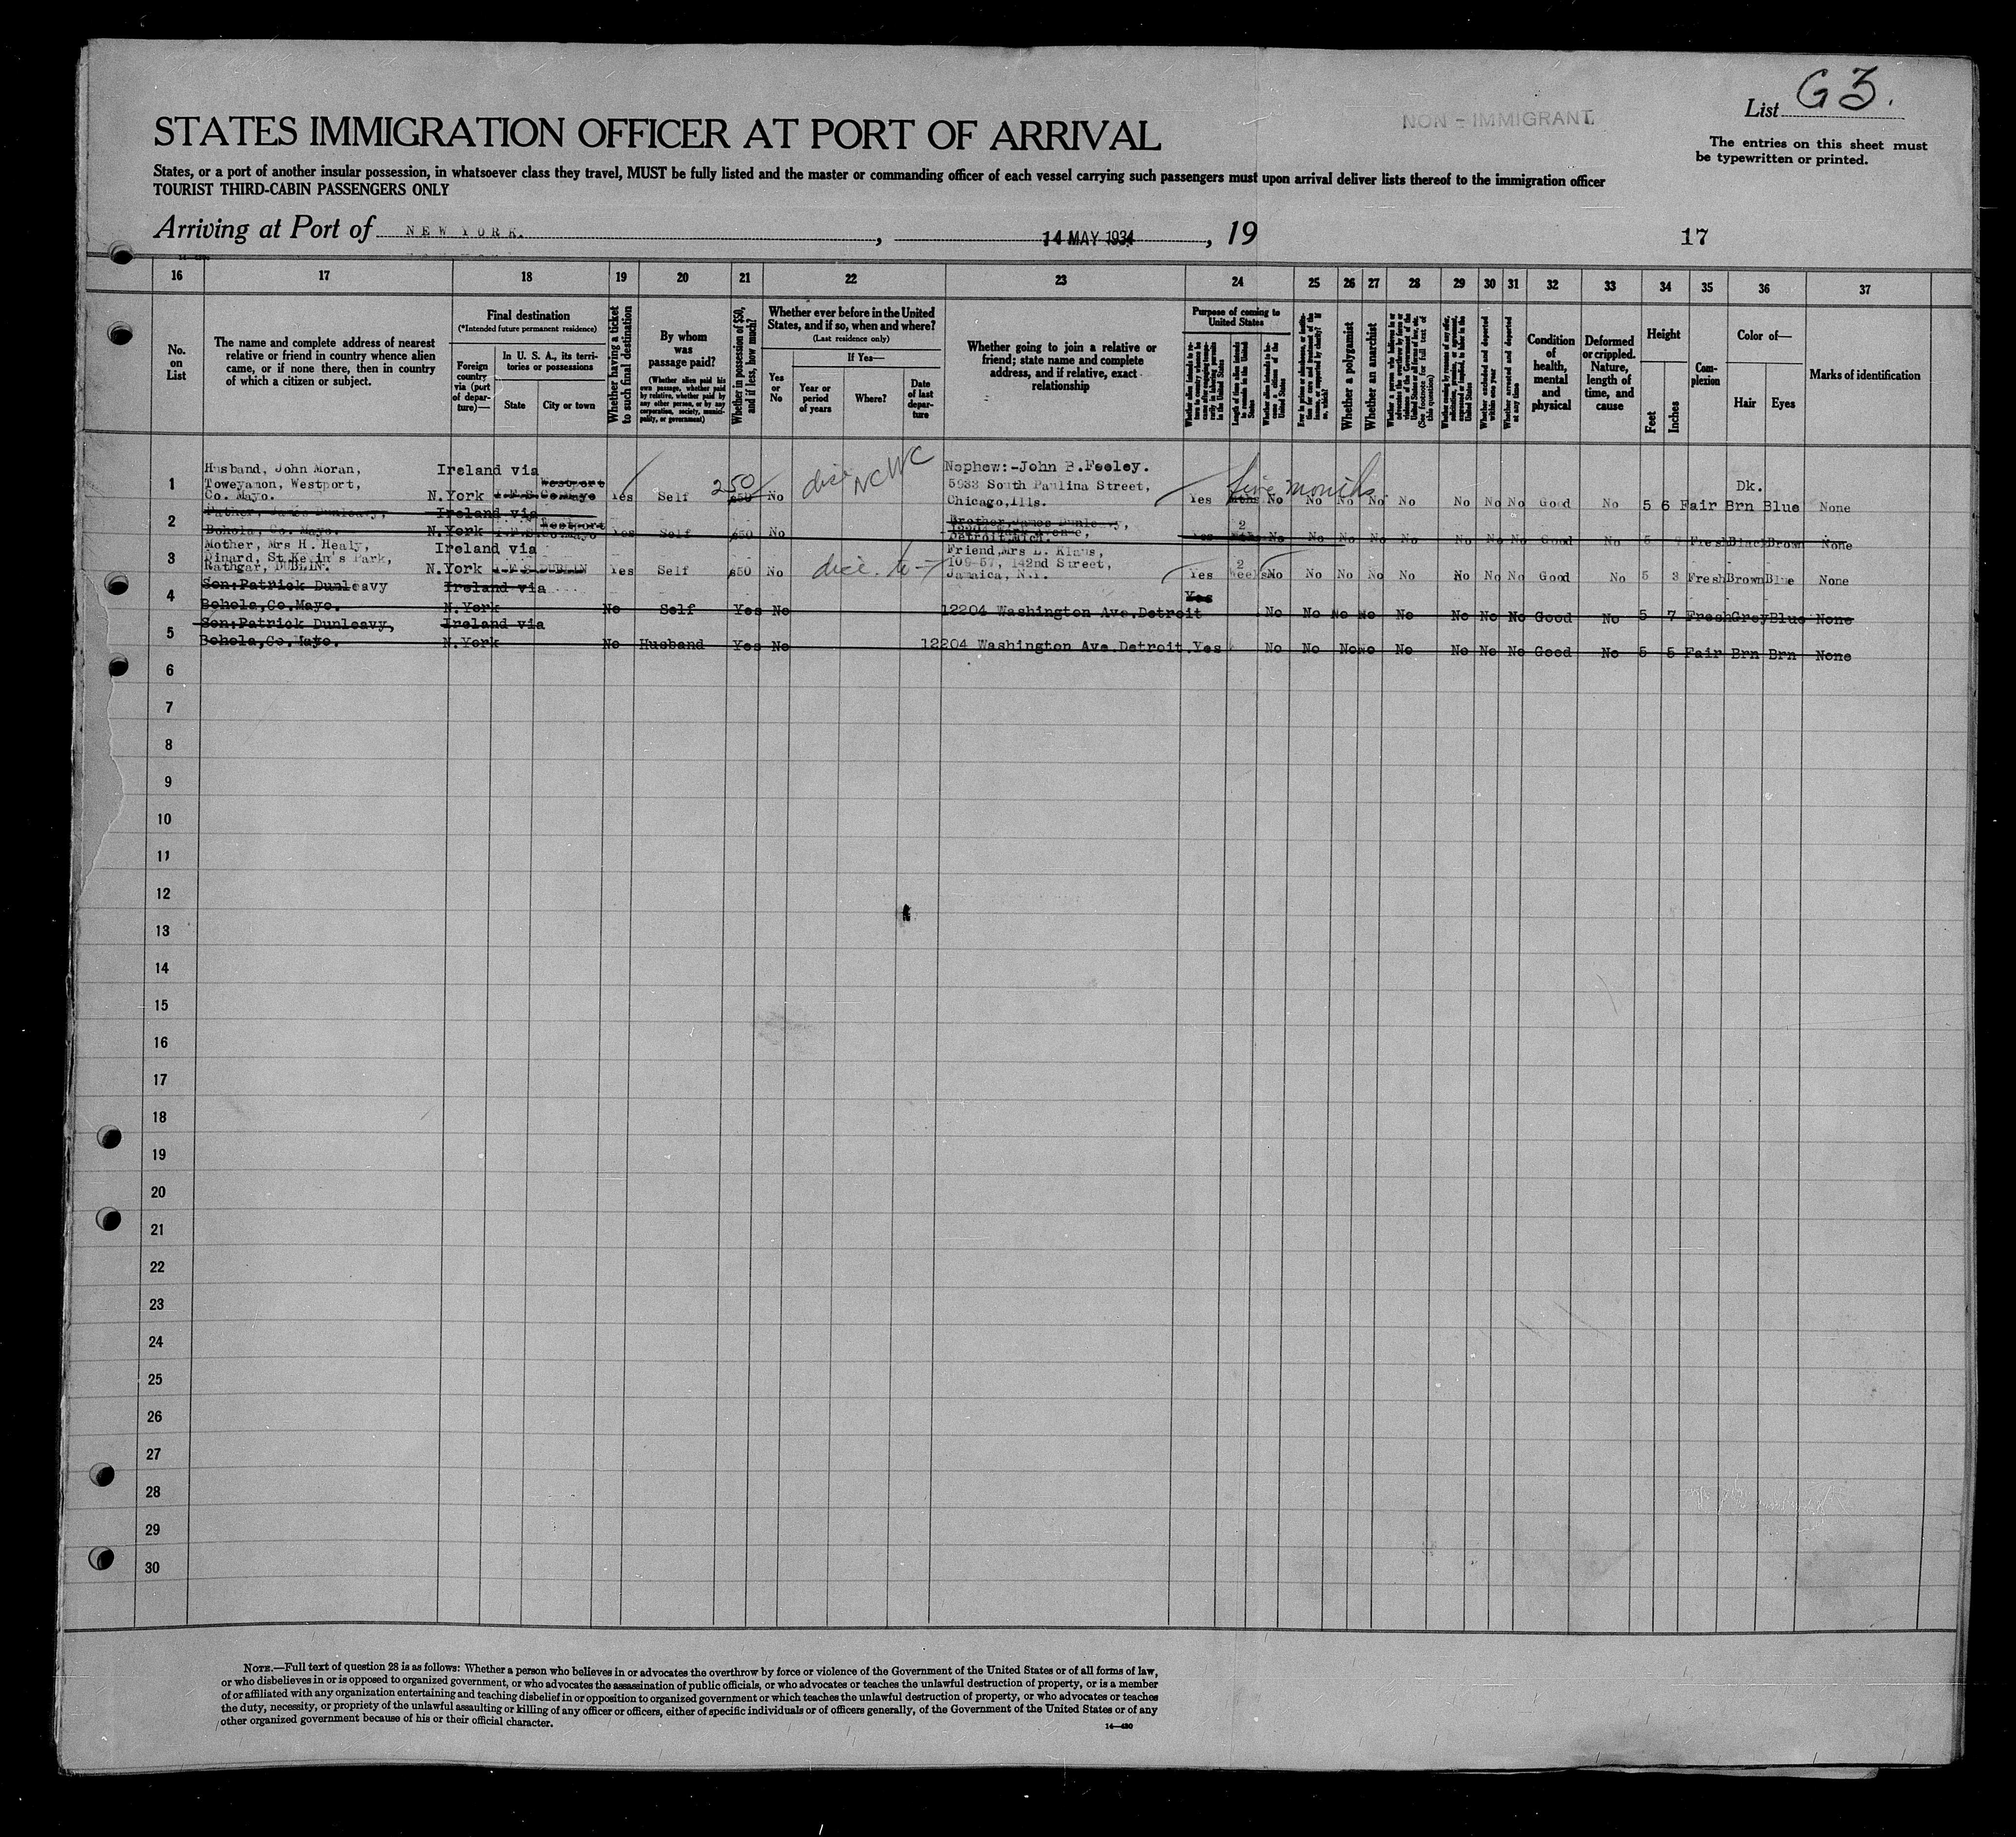 List G3.
NON - IMMIGRANT
The entries on this sheet must
be typewritten or printed.
STATES IMMIGRATION OFFICER AT PORT OF ARRIVAL
States, or a port of another insular possession, in whatsoever class they travel, MUST be fully listed and the master or commanding officer of each vessel carrying such passengers must upon arrival deliver lists thereof to the immigration officer
TOURIST THIRD-CABIN PASSENGERS ONLY
Arriving at Port of NEW YORK. , 14 MAY 1934 , 19
17
16 17 18 19 20 21 22 23 24 25 26 27 28 29 30 31 32 33 34 35 36 37
No. on List
The name and complete address of nearest
relative or friend in country whence alien
came, or if none there, then in country
of which a citizen or subject.
Final destination
(*Intended future permanent residence)
Foreign country via (port of departure)—
In U. S. A., its territories or possessions
State
City or town
Whether having a ticket to such final destination
By whom was passage paid?
(Whether alien paid his own passage, whether paid by relative, whether paid by any other person, or by any corporation, society, municipality, or government)
Whether in possession of $50, and if less, how much?
Whether ever before in the United
States, and if so, when and where?
(Last residence only)
Yes or No
If Yes—
Year or period of years
Where?
Date of last departure
Whether going to join a relative or
friend; state name and complete
address, and if relative, exact
relationship
Purpose of coming to United States
Length of time alien intends to remain in the United States
Whether alien intends to become a citizen of the United States
Whether a polygamist
Whether an anarchist
(See footnote for full text of this question)
Whether excluded and deported within one year
Whether arrested and deported at any time
Condition of health, mental and physical
Deformed or crippled. Nature, length of time, and cause
Height
Feet
Inches
Complexion
Color of—
Hair
Eyes
Marks of identification
1
Husband, John Moran,
Toweyanon, Westport,
Co. Mayo.
Ireland via
N.York I.F.S. Westport Co.Mayo
Yes Self 250 £50 No
NCWC
Nephew:-John B.Feeley.
5933 South Paulina Street,
Chicago,Ills.
Yes five months Mths No No No No No No No No Good No 5 6 Fair Dk. Brn Blue None
2
Father, James Dunleavy,
Bohola, Co. Mayo.
Ireland via
N.York I.F.S. Westport Co.Mayo
Yes Self £50 No
Brother,James Dunleavy,
Detroit,Mich.
Yes 2 Mths No No No No No No No No Good No 5 Fresh Black Brown None
3
Mother, Mrs H. Healy,
Dinard, St.Kevin's Park,
Rathgar, DUBLIN.
Ireland via
N.York I.F.S. DUBLIN
Yes Self £50 No
Friend,Mrs L. Klaus,
109-57, 142nd Street,
Jamaica, N.Y.
Yes 2 weeks No No No No No No No No Good No 5 3 Fresh Brown Blue None
4
Son:Patrick Dunleavy
Bohola,Co.Mayo.
Ireland via
N.York
No Self Yes No
12204 Washington Ave.Detroit
Yes No No No No No No No No Good No 5 7 Fresh Grey Blue None
5
Son:Patrick Dunleavy,
Bohola,Co.Mayo.
Ireland via
N.York
No Husband Yes No
12204 Washington Ave.Detroit.
Yes No No No No No No No No Good No 5 5 Fair Brn Brn None
6
7
8
9
10
11
12
13
14
15
16
17
18
19
20
21
22
23
24
25
26
27
28
29
30
NOTE.—Full text of question 28 is as follows: Whether a person who believes in or advocates the overthrow by force or violence of the Government of the United States or of all forms of law,
or who disbelieves in or is opposed to organized government, or who advocates the assassination of public officials, or who advocates or teaches the unlawful destruction of property, or is a member
of or affiliated with any organization entertaining and teaching disbelief in or opposition to organized government or which teaches the unlawful destruction of property, or who advocates or teaches
the duty, necessity, or propriety of the unlawful assaulting or killing of any officer or officers, either of specific individuals or of officers generally, of the Government of the United States or of any
other organized government because of his or their official character.
14—430